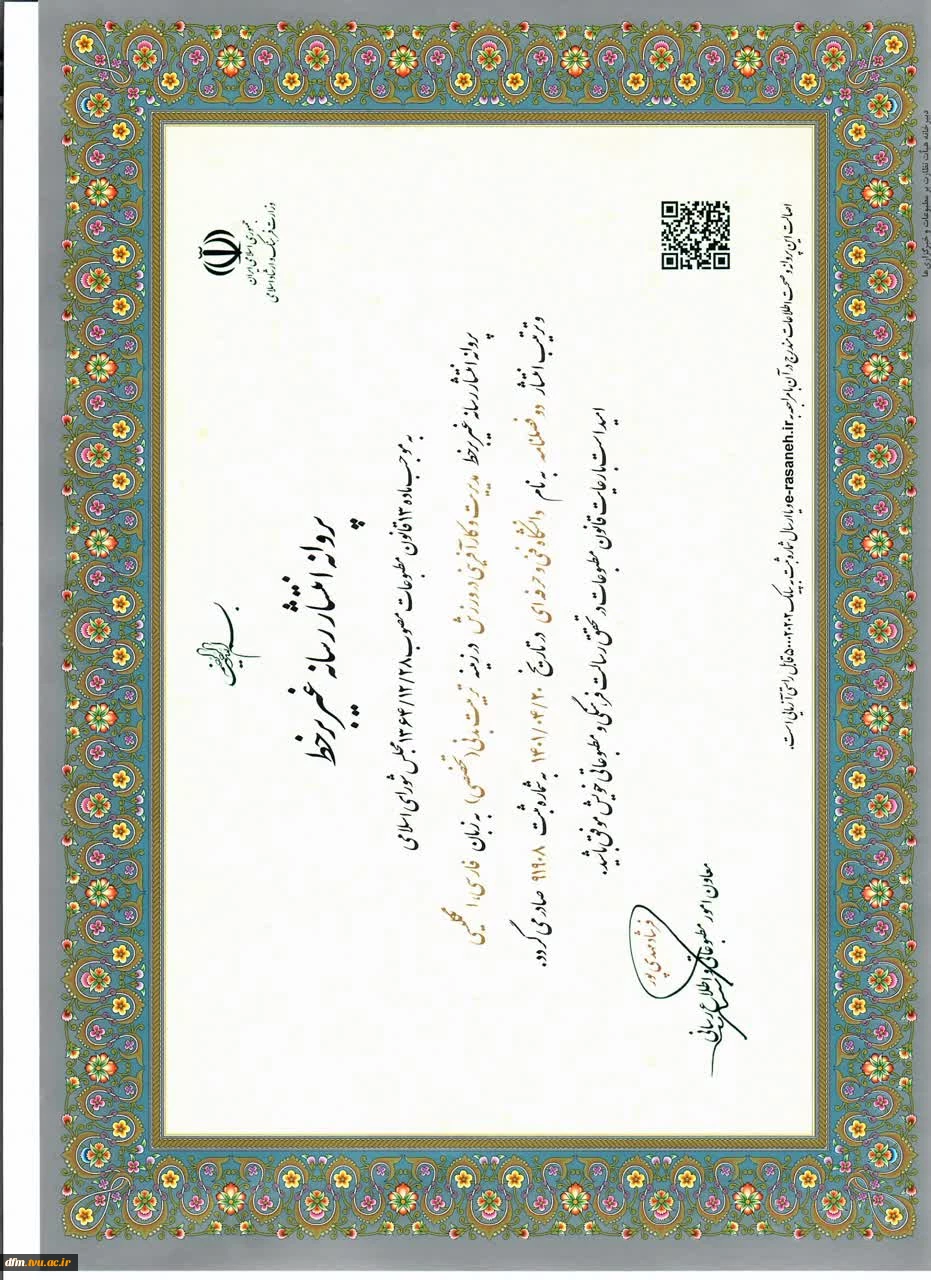 جمهوری اسلامی ایران
وزارت فرهنگ و ارشاد اسلامی
پروانه انتشار رسانه غیر برخط
به موجب ماده ۱۳ قانون مطبوعات مصوب ۱۳۶۴/۱۲/۲۸ مجلس شورای اسلامی
پروانه انتشار رسانه غیر برخط مدیریت و کارآفرینی در ورزش در زمینه تربیت بدنی (تخصصی) به زبان فارسی، انگلیسی
و ترتیب انتشار دو فصلنامه به نام دانشگاه فنی و حرفه ای در تاریخ ۱۴۰۱/۰۴/۲۰ به شماره ثبت ۹۱۹۰۸ صادر می گردد.
امید است با رعایت قانون مطبوعات در تحقق رسالت فرهنگی و مطبوعاتی خویش موفق باشید.
فرشاد مهدی پور
معاون امور مطبوعاتی و اطلاع رسانی
اصالت این پروانه و صحت اطلاعات مندرج در آن با مراجعه به e-rasaneh.ir و یا ارسال شماره ثبت به پیامک ۵۰۰۰۲۰۲۰۲ قابل راستی آزمایی است.
دبیرخانه هیأت نظارت بر مطبوعات و خبرگزاری ها
dfm.tvu.ac.ir